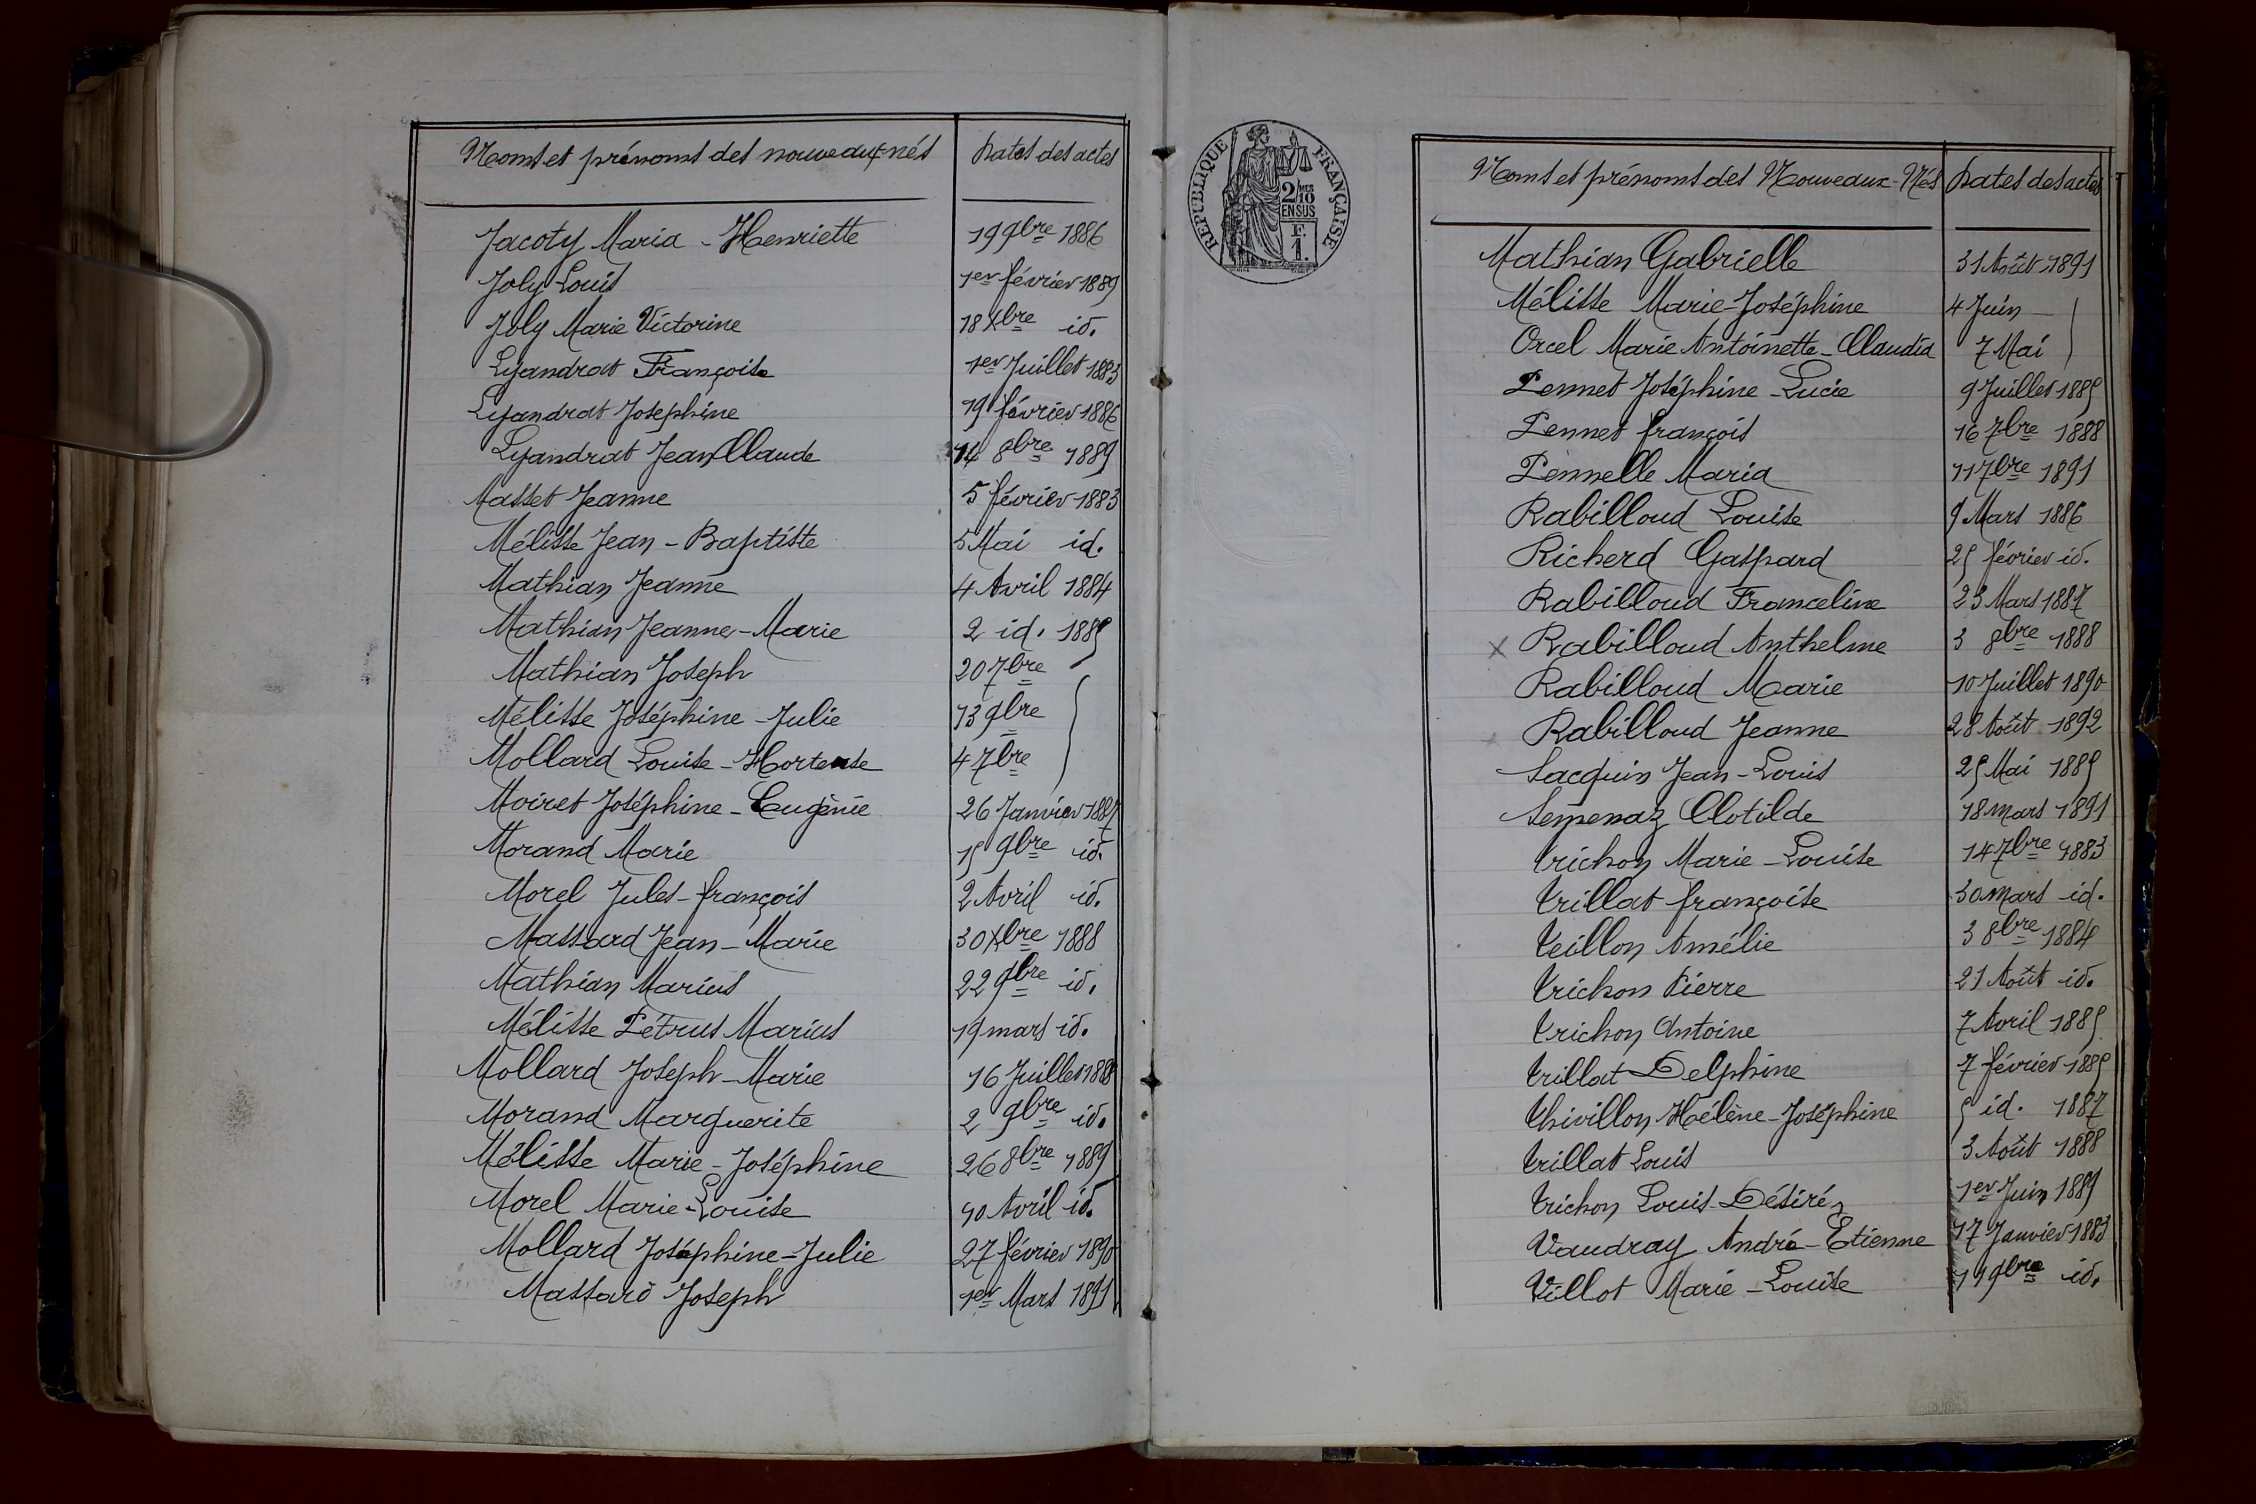 Noms et prénoms des nouveaux-nés Dates des actes
Jacoty Maria - Henriette 19 9bre 1886
Joly Louis 1er février 1889
Joly Marie Victorine 18 Xbre id.
Lyandrat Françoise 1er Juillet 1883
Lyandrat Josephine 19 février 1886
Lyandrat Jean Claude 14 8bre 1889
Masset Jeanne 5 février 1883
Mélisse Jean - Baptiste 5 Mai id.
Mathian Jeanne 4 Avril 1884
Mathian Jeanne - Marie 2 id. 1885
Mathian Joseph 20 7bre
Mélisse Joséphine - Julie 13 9bre
Mollard Louise - Hortense 4 7bre
Moiret Joséphine - Eugènie 26 Janvier 1887
Morand Marie 15 9bre id.
Morel Jules - françois 2 Avril id.
Massard Jean - Marie 30 Xbre 1888
Mathian Marius 22 9bre id.
Mélisse Pétrus Marius 19 mars id.
Mollard Joseph - Marie 16 Juillet 1888
Morand Marguerite 2 9bre id.
Mélisse Marie - Joséphine 26 8bre 1889
Morel Marie - Louise 10 Avril id.
Mollard Joséphine - Julie 27 février 1890
Massard Joseph 1er Mars 1891
RÉPUBLIQUE FRANÇAISE
2/10
EN SUS
F.
1.
Noms et prénoms des Nouveaux - Nés Dates des actes
Mathian Gabrielle 31 Août 1891
Mélisse Marie - Joséphine 4 Juin
Orcel Marie Antoinette - Claudia 7 Mai
Pennet Joséphine - Lucie 9 Juillet 1885
Pennet françois 16 7bre 1888
Pennelle Maria 11 7bre 1891
Rabilloud Louise 9 Mars 1886
Richerd Gaspard 25 février id.
Rabilloud Franceline 23 Mars 1887
x Rabilloud Anthelme 3 8bre 1888
Rabilloud Marie 10 Juillet 1890
x Rabilloud Jeanne 28 Août 1892
Sacquin Jean - Louis 25 Mai 1885
Sempenaz Clotilde 18 mars 1891
Trichon Marie - Louise 14 7bre 1883
Trillat françoise 30 mars id.
Teillon Amélie 3 8bre 1884
Trichon Pierre 21 Août id.
Trichon Antoine 7 Avril 1885
Trillat Delphine 7 février 1885
Thivillon Hélène - Joséphine 5 id. 1887
Trillat Louis 3 Août 1888
Trichon Louis - Désiré 1er Juin 1889
Vaudray André - Etienne 17 Janvier 1883
Villot Marie - Louise 11 9bre id.